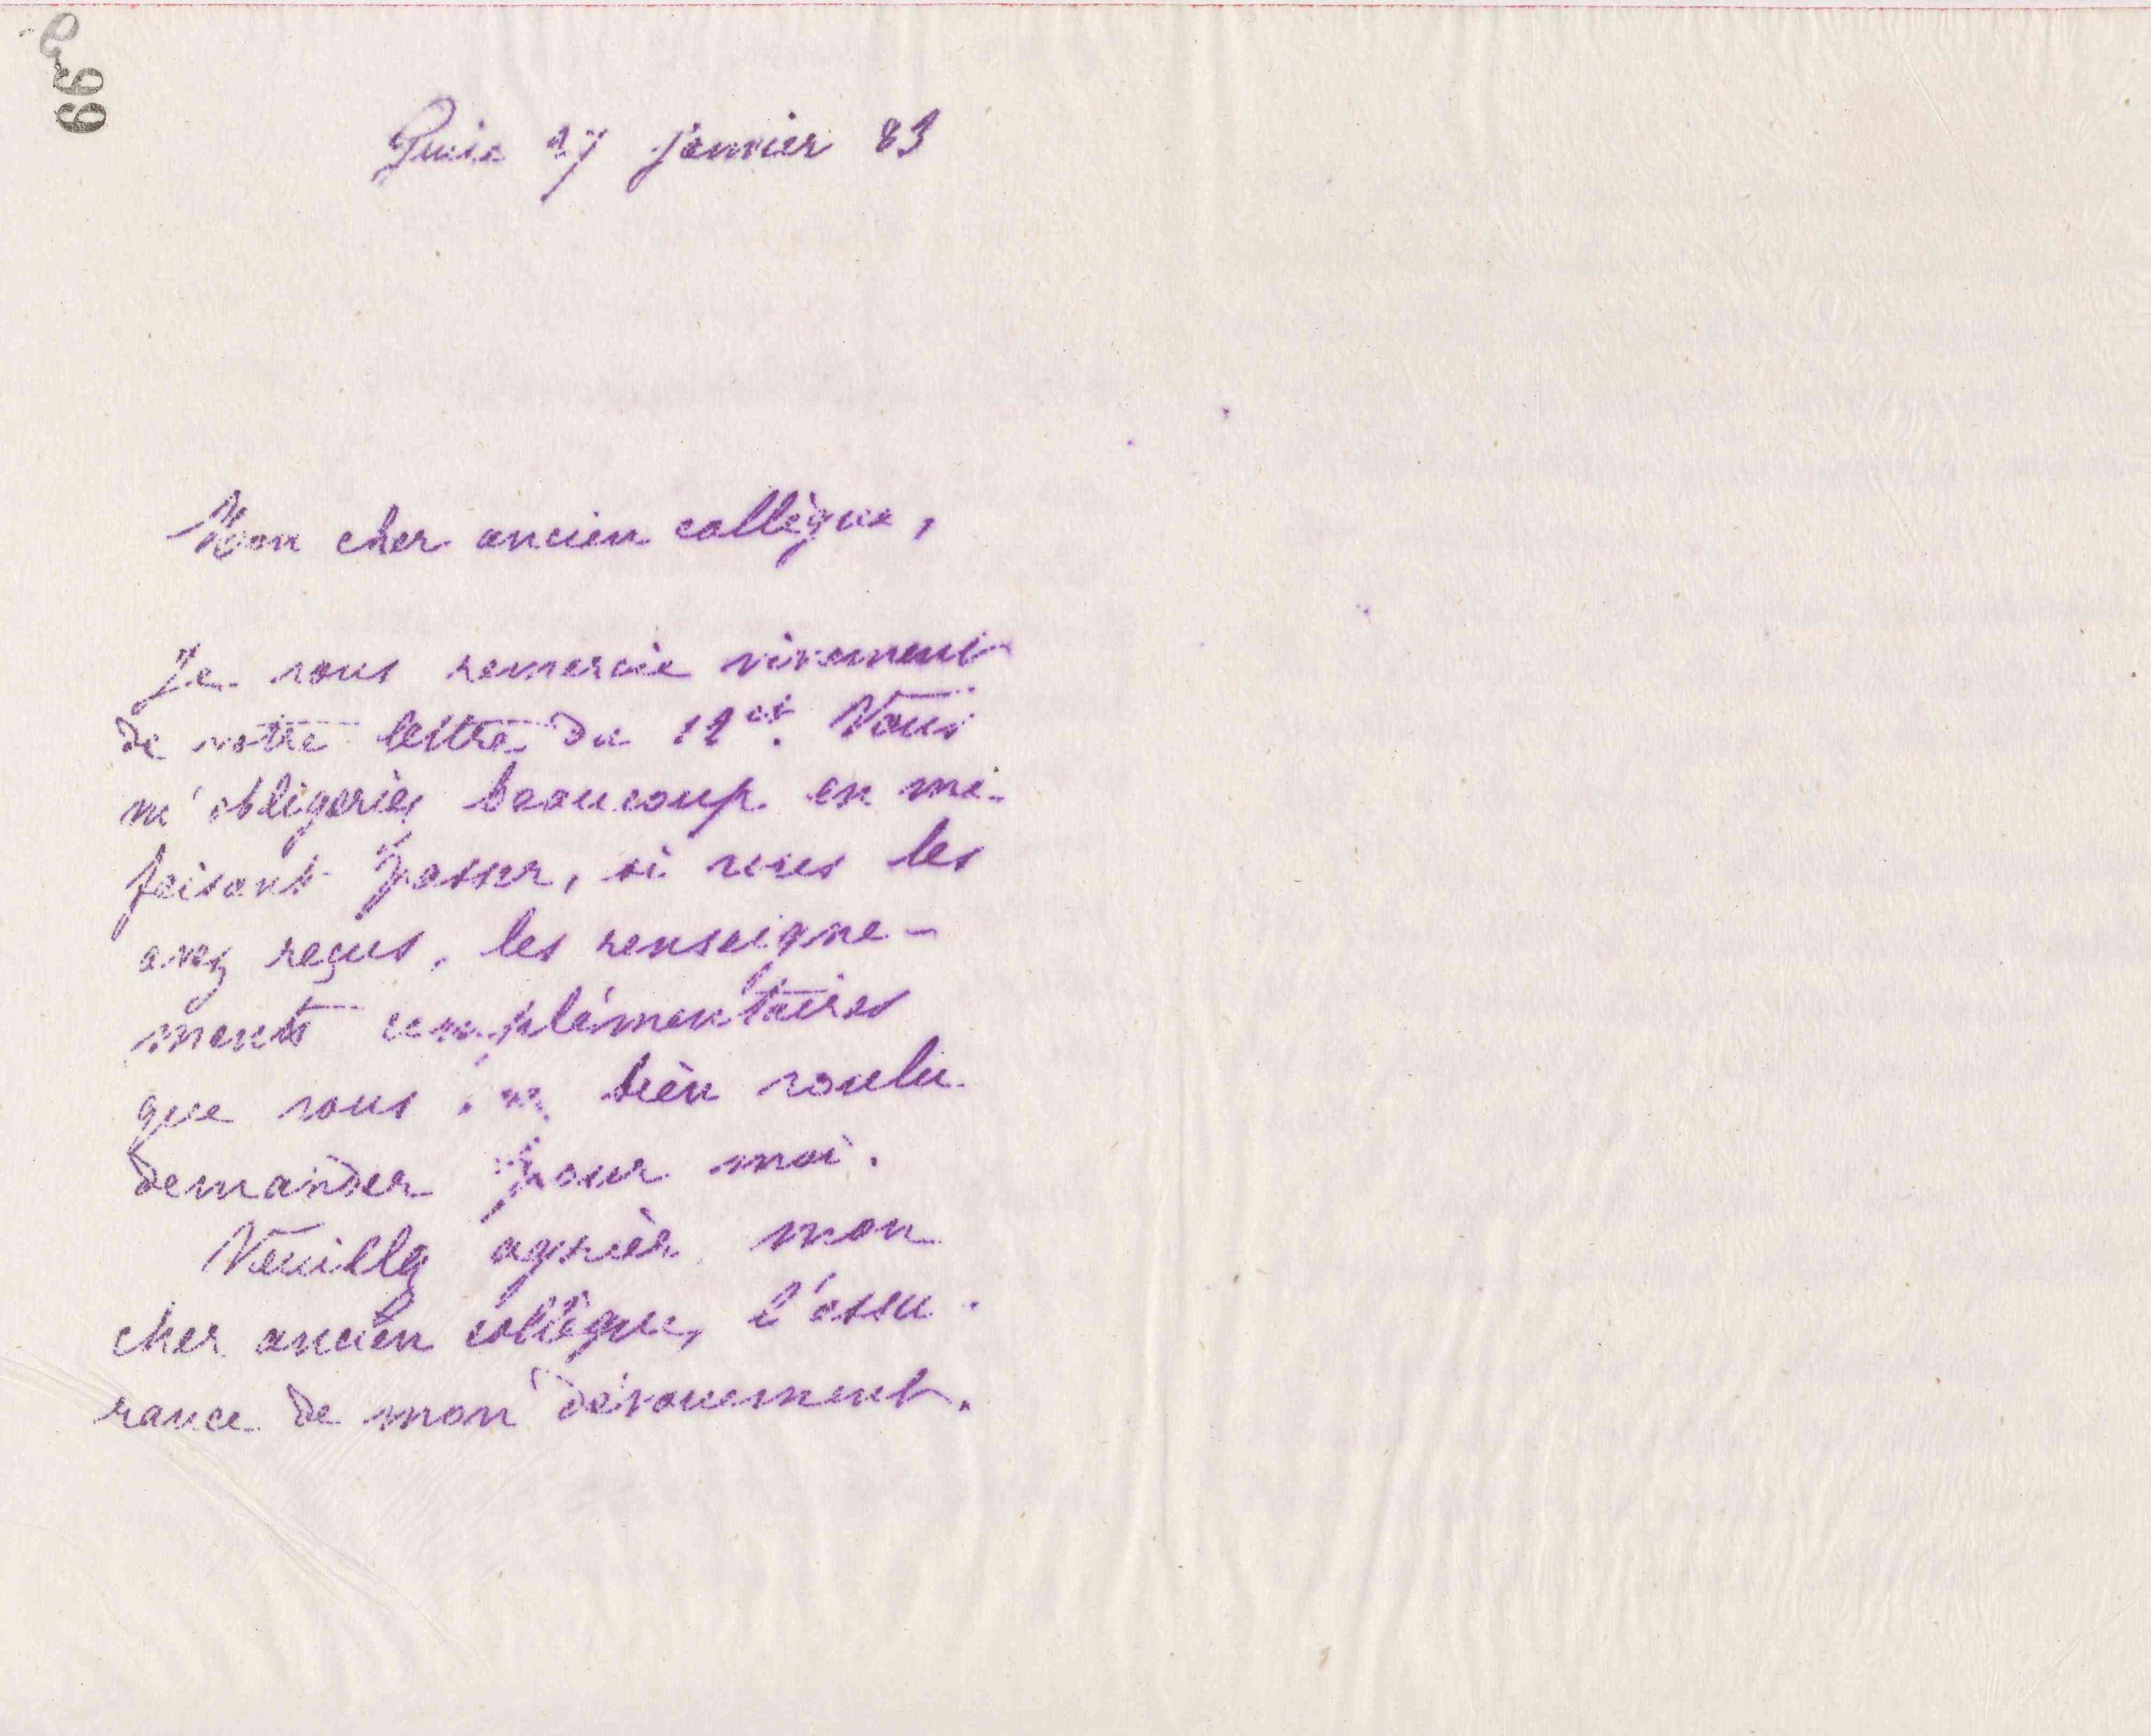 66
Guise 27 janvier 83
Mon cher ancien collègue,
Je vous remercie vivement
de votre lettre du 12 ct. Vous
m'obligeriez beaucoup en me
faisant passer, si vous les
avez reçus, les renseigne-
ments complémentaires
que vous bien voulu
demander pour moi.
Veuillez agréer mon
cher ancien collègue, l'assu-
rance de mon dévouement.